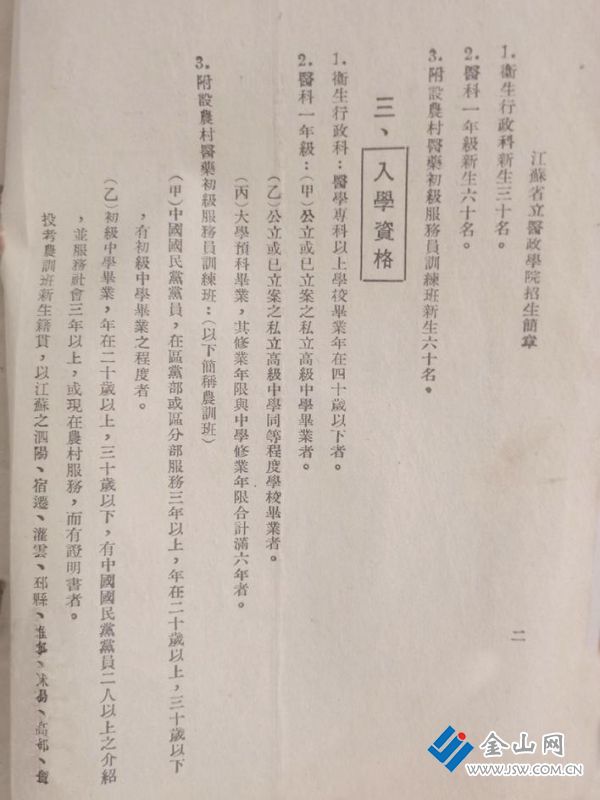 江蘇省立醫政學院招生簡章
二
1.衞生行政科新生三十名。
2.醫科一年級新生六十名。
3.附設農村醫藥初級服務員訓練班新生六十名。
三、入學資格
1.衞生行政科：醫學專科以上學校畢業年在四十歲以下者。
2.醫科一年級：（甲）公立或已立案之私立高級中學畢業者。
（乙）公立或已立案之私立高級中學同等程度學校畢業者。
（丙）大學預科畢業，其修業年限與中學修業年限合計滿六年者。
3.附設農村醫藥初級服務員訓練班：（以下簡稱農訓班）
（甲）中國國民黨黨員，在區黨部或區分部服務三年以上，年在二十歲以上，三十歲以下
，有初級中學畢業之程度者。
（乙）初級中學畢業，年在二十歲以上，三十歲以下，有中國國民黨黨員二人以上之介紹
，並服務社會三年以上，或現在農村服務，而有證明書者。
投考農訓班新生籍貫，以江蘇之泗陽、宿遷、灌雲、邳縣、沭陽、高郵、
金山网
WWW.JSW.COM.CN